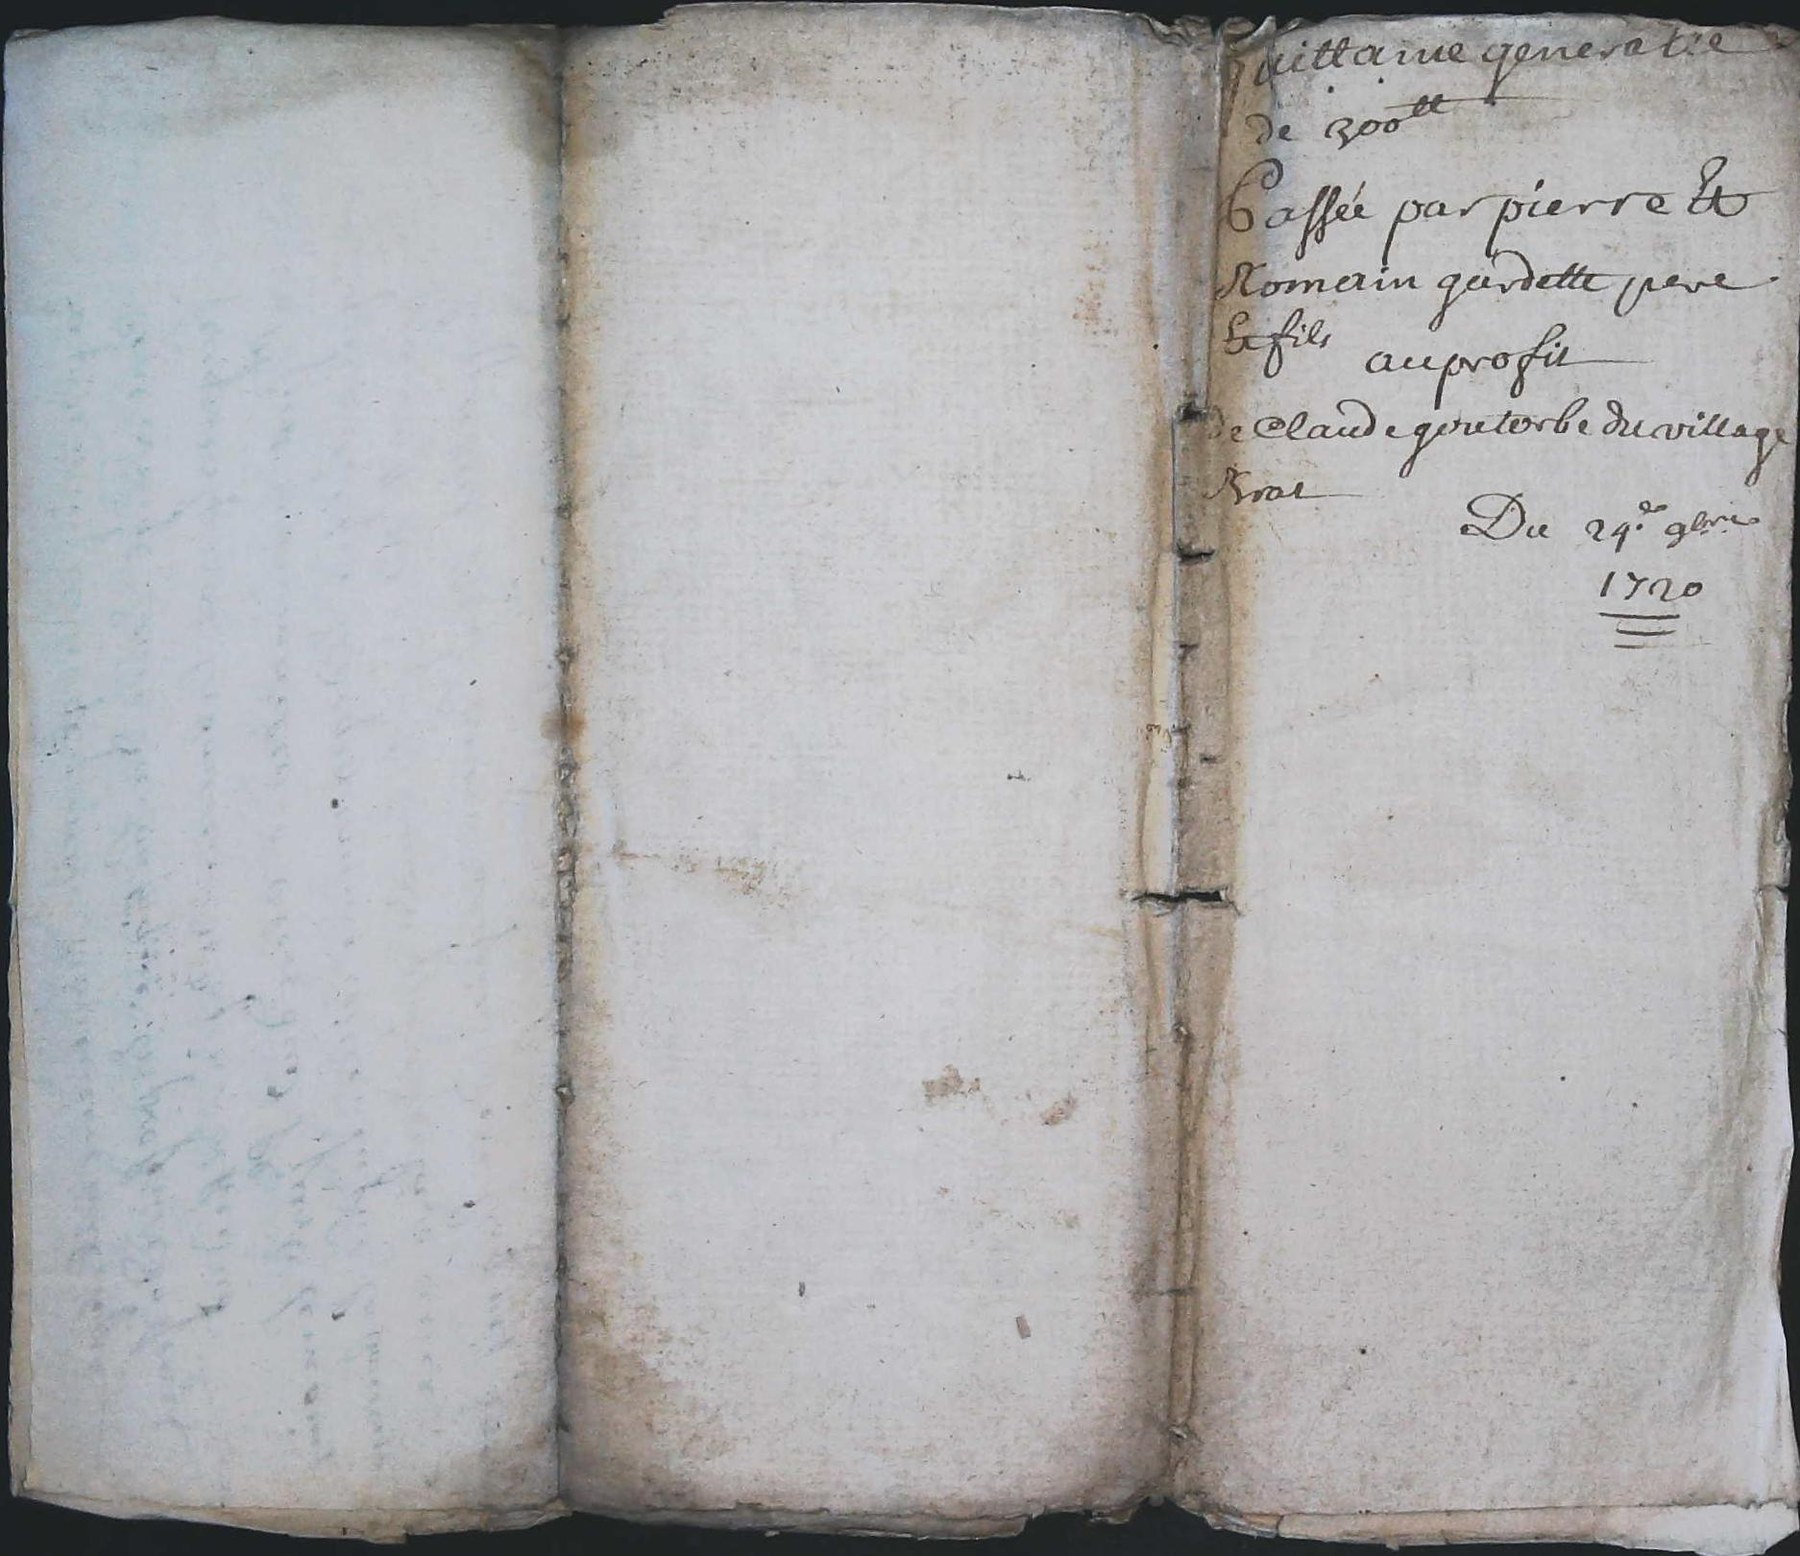 quittance generalle
de 300ᵗᵗ
Passée par pierre Et
Romain gardette pere
Et fils
au profit
de Claude goutorbe du village
Du 24ᵉ 9bre
1720